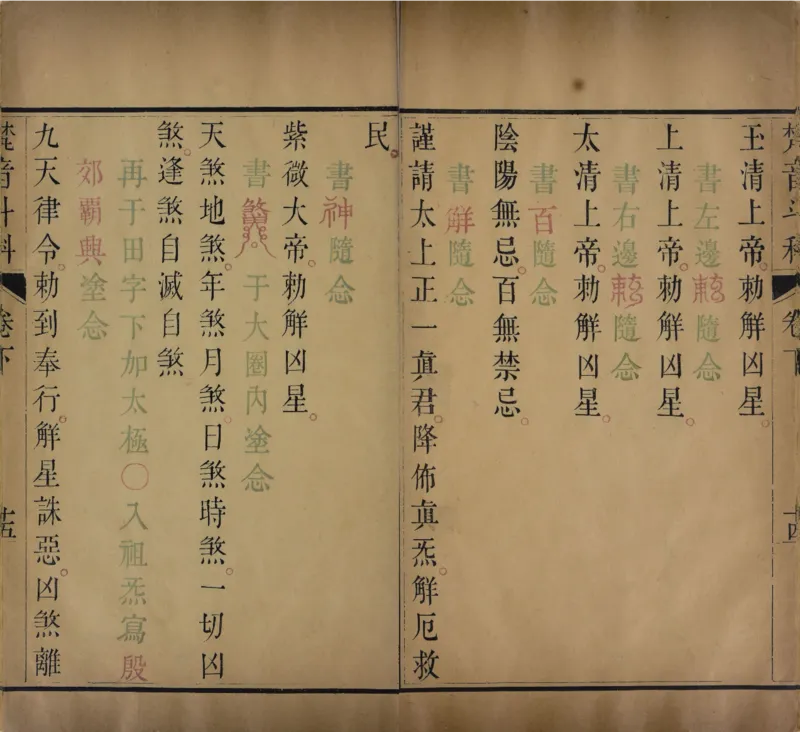 梵音斗科 卷下 十四
玉清上帝。勅解凶星。
書左邊勅隨念
上清上帝。勅解凶星。
書右邊勅隨念
太清上帝。勅解凶星。
書百隨念
陰陽無忌。百無禁忌。
書觧隨念
謹請太上正一真君。降佈真炁。觧厄救
民。
書神隨念
紫微大帝。勅觧凶星。
書于大圈內塗念
天煞地煞。年煞月煞。日煞時煞。一切凶
煞。逢煞自滅自煞
再于田字下加太極〇入祖炁寫殷
郊霸興塗念
九天律令。勅到奉行。觧星誅惡。凶煞離
梵音斗科 卷下 十五